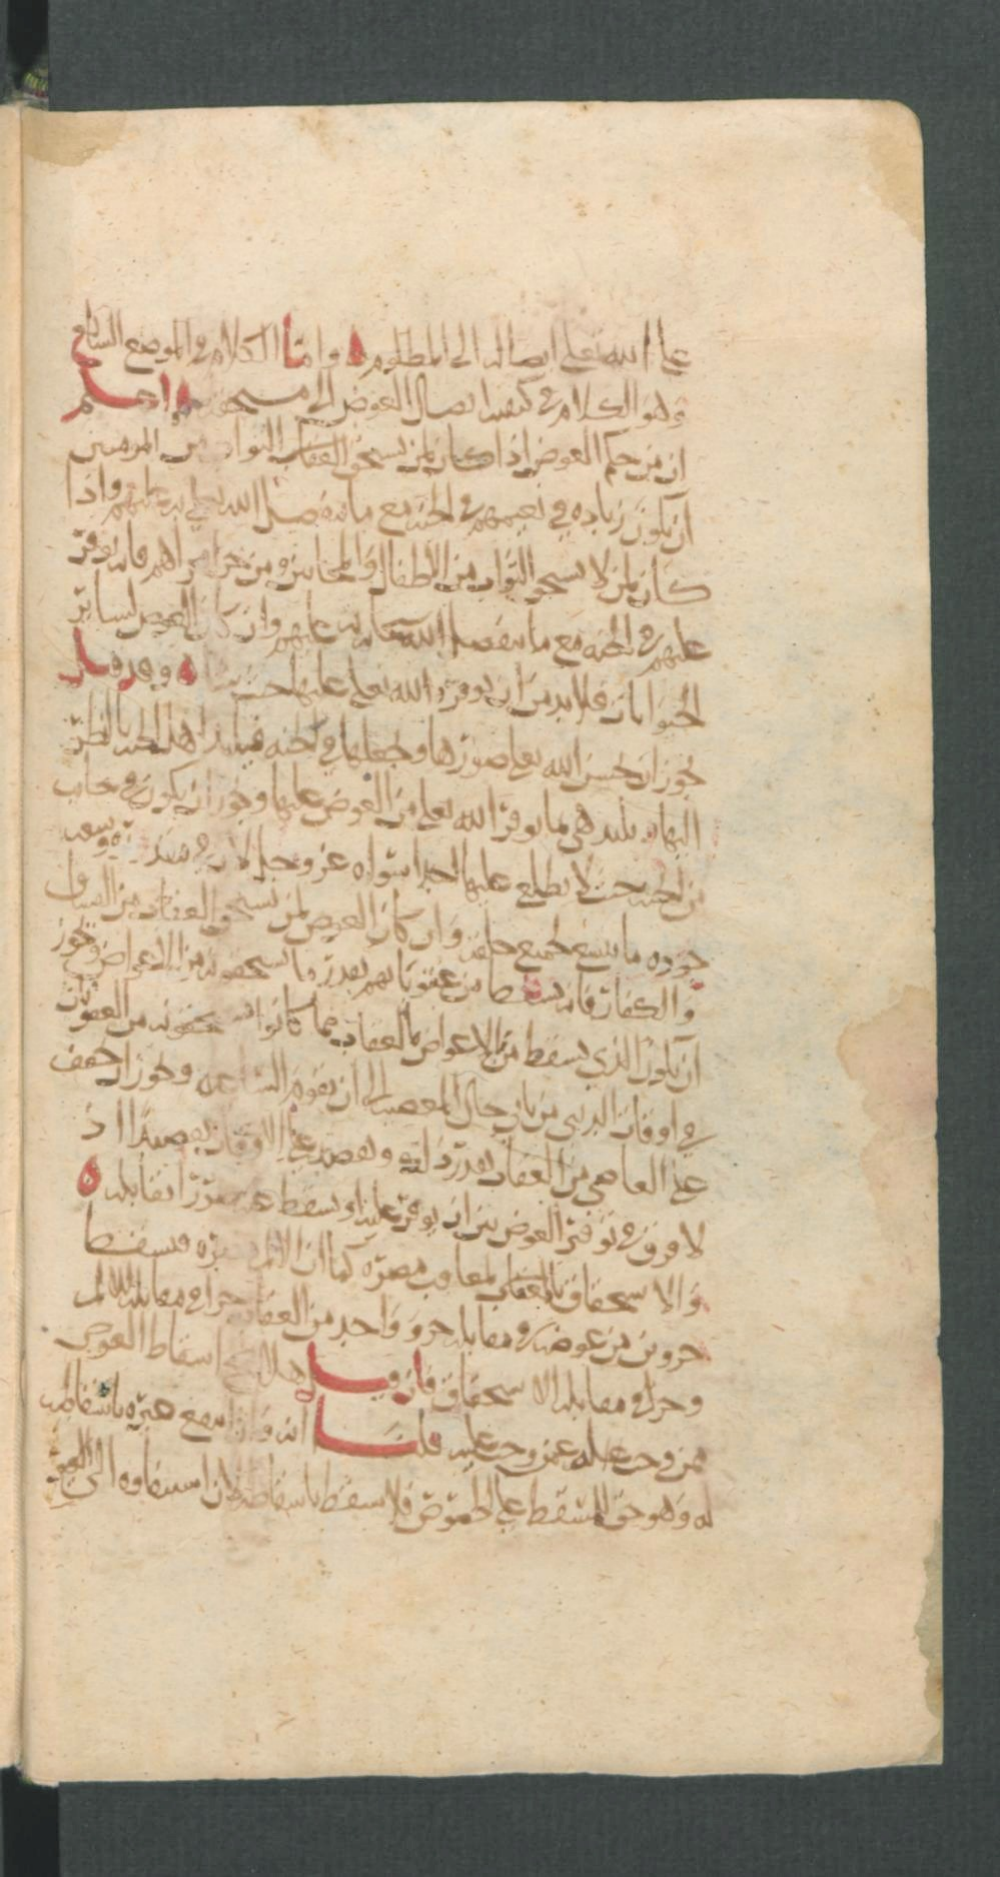 على الله تعلى ايصاله الى المطلوم ٥ وامّا الكلام في الموضع السابع
وهو الكلام في كيفية ايصال العوض الى مستحقه ٥ اعلم
ان من حكم العوض اذا كان لمن يستحق الثواب من المومنين
ان يكون زياده في نعيمهم في الجنه مع ما يتفضل الله تعلى به عليهم واذا
كان لمن لا يستحق الثواب من الاطفال والمجانين ومن جرا مجراهم فانه يوفر
عليهم في الجنه مع ما يتفضل الله تعلى به عليهم وان كان العوض لسائر
الحيوانات فلا بد من ان يوفره الله تعلى عليها حيث شا ٥ وقد قيل
يجوز ان يحسن الله تعلى صورها ويجعلها في الجنه فيلتذ اهل الجنه بالنظر
اليها وتلتذ هي بما يوفر الله تعلى من العوض عليها ويجوز ان يكون في جانب
من الجنه حيث لا يطلع عليها احد سواه عز وجل لان في وسعه
جوده ما يتسع لجميع خلقه وان كان العوض لمن يستحق العقاب من الفساق
والكفار فانه يسقط من عقوباتهم بقدر ما يستحقونه من الاعواض ويجوز
ان يكون الذي يسقط من الاعواض بالعقاب مما كانوا يستحقونه من العقوبات
في اوقات الدنيى من حال المعصيه الى ان تقوم الساعه ويجوز ان يخفف
على العاصي من العقاب بقدر ذلك اذ
لا فرق في توفير العوض بين ان يوفر عليه او يسقط عنه ضررا يقابله ٥
والاستحقاق للعقاب مضره كما ان الالم مضره فيسقط
جزوين من عوضه في مقابله جزو واحد من العقاب جزا في مقابله الالم
وجزا في مقابله الاستحقاق فان قيل هلا اسقاط العوض
ممن وجب له عمن وجب عليه قلنا انه باسقاطه
له وهو حق للمسقط على الخصوص فلا يسقط باسقاطه لان استيفاوه الى